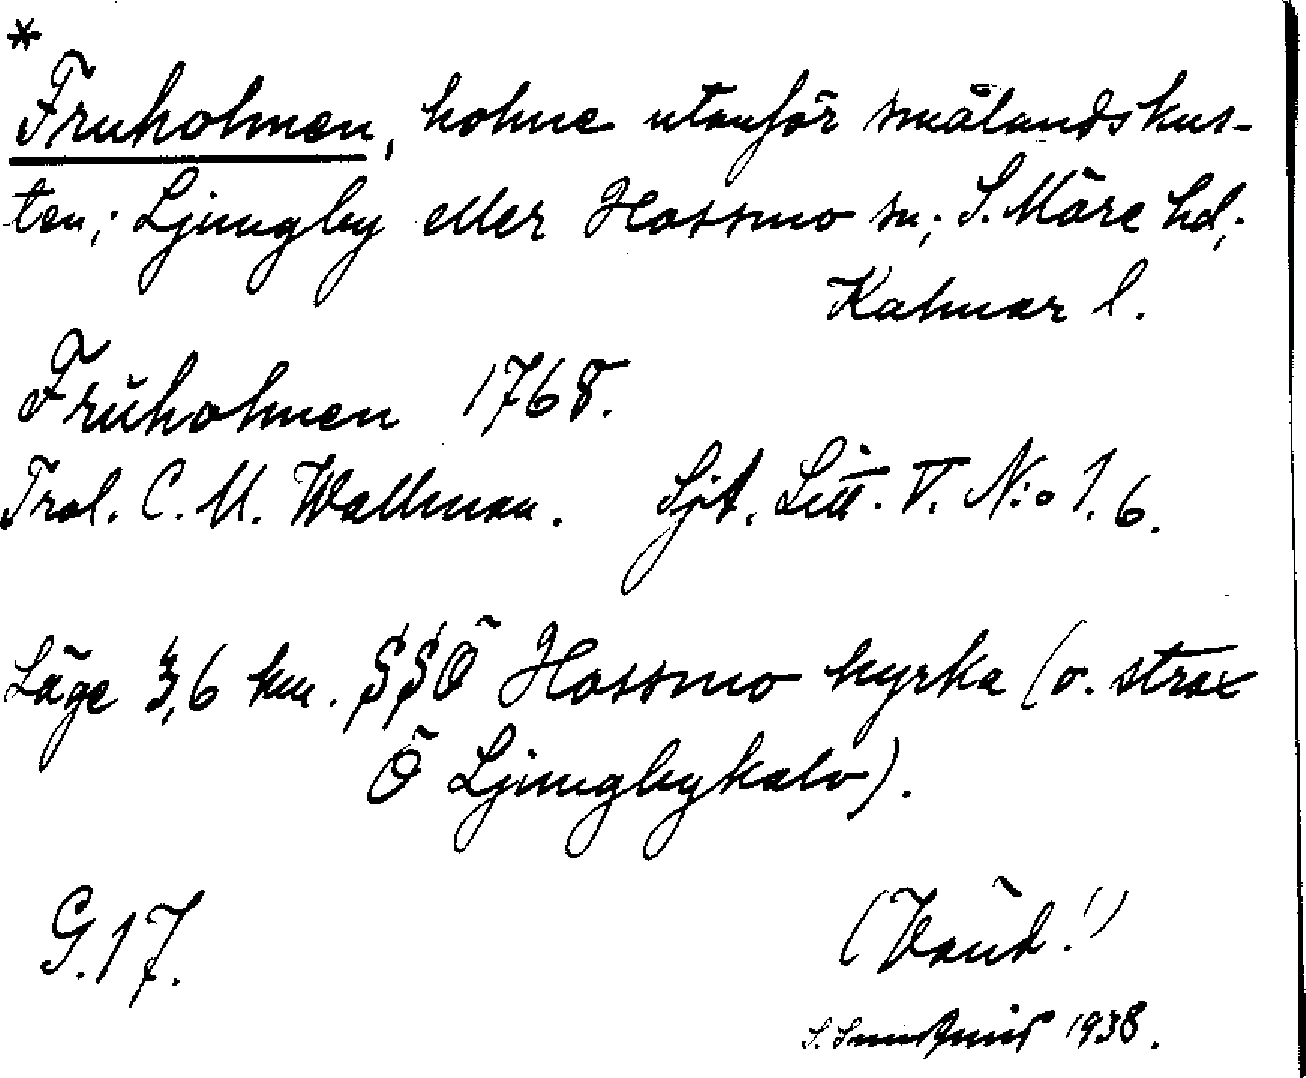 *
Fruholmen, holme utanför smålandskus-
ten; Ljungby eller Hossmo sn; S. Möre hd;
Kalmar l.
Frŭholmen 1768.
C. M. Wallman. Sjt. Litt. V. N:o 1. 6.
Läge 3,6 km. SSÖ Hossmo kyrka (o. strax
Ö Ljungbykalv).
G. 17.
(Vänd!)
1938.